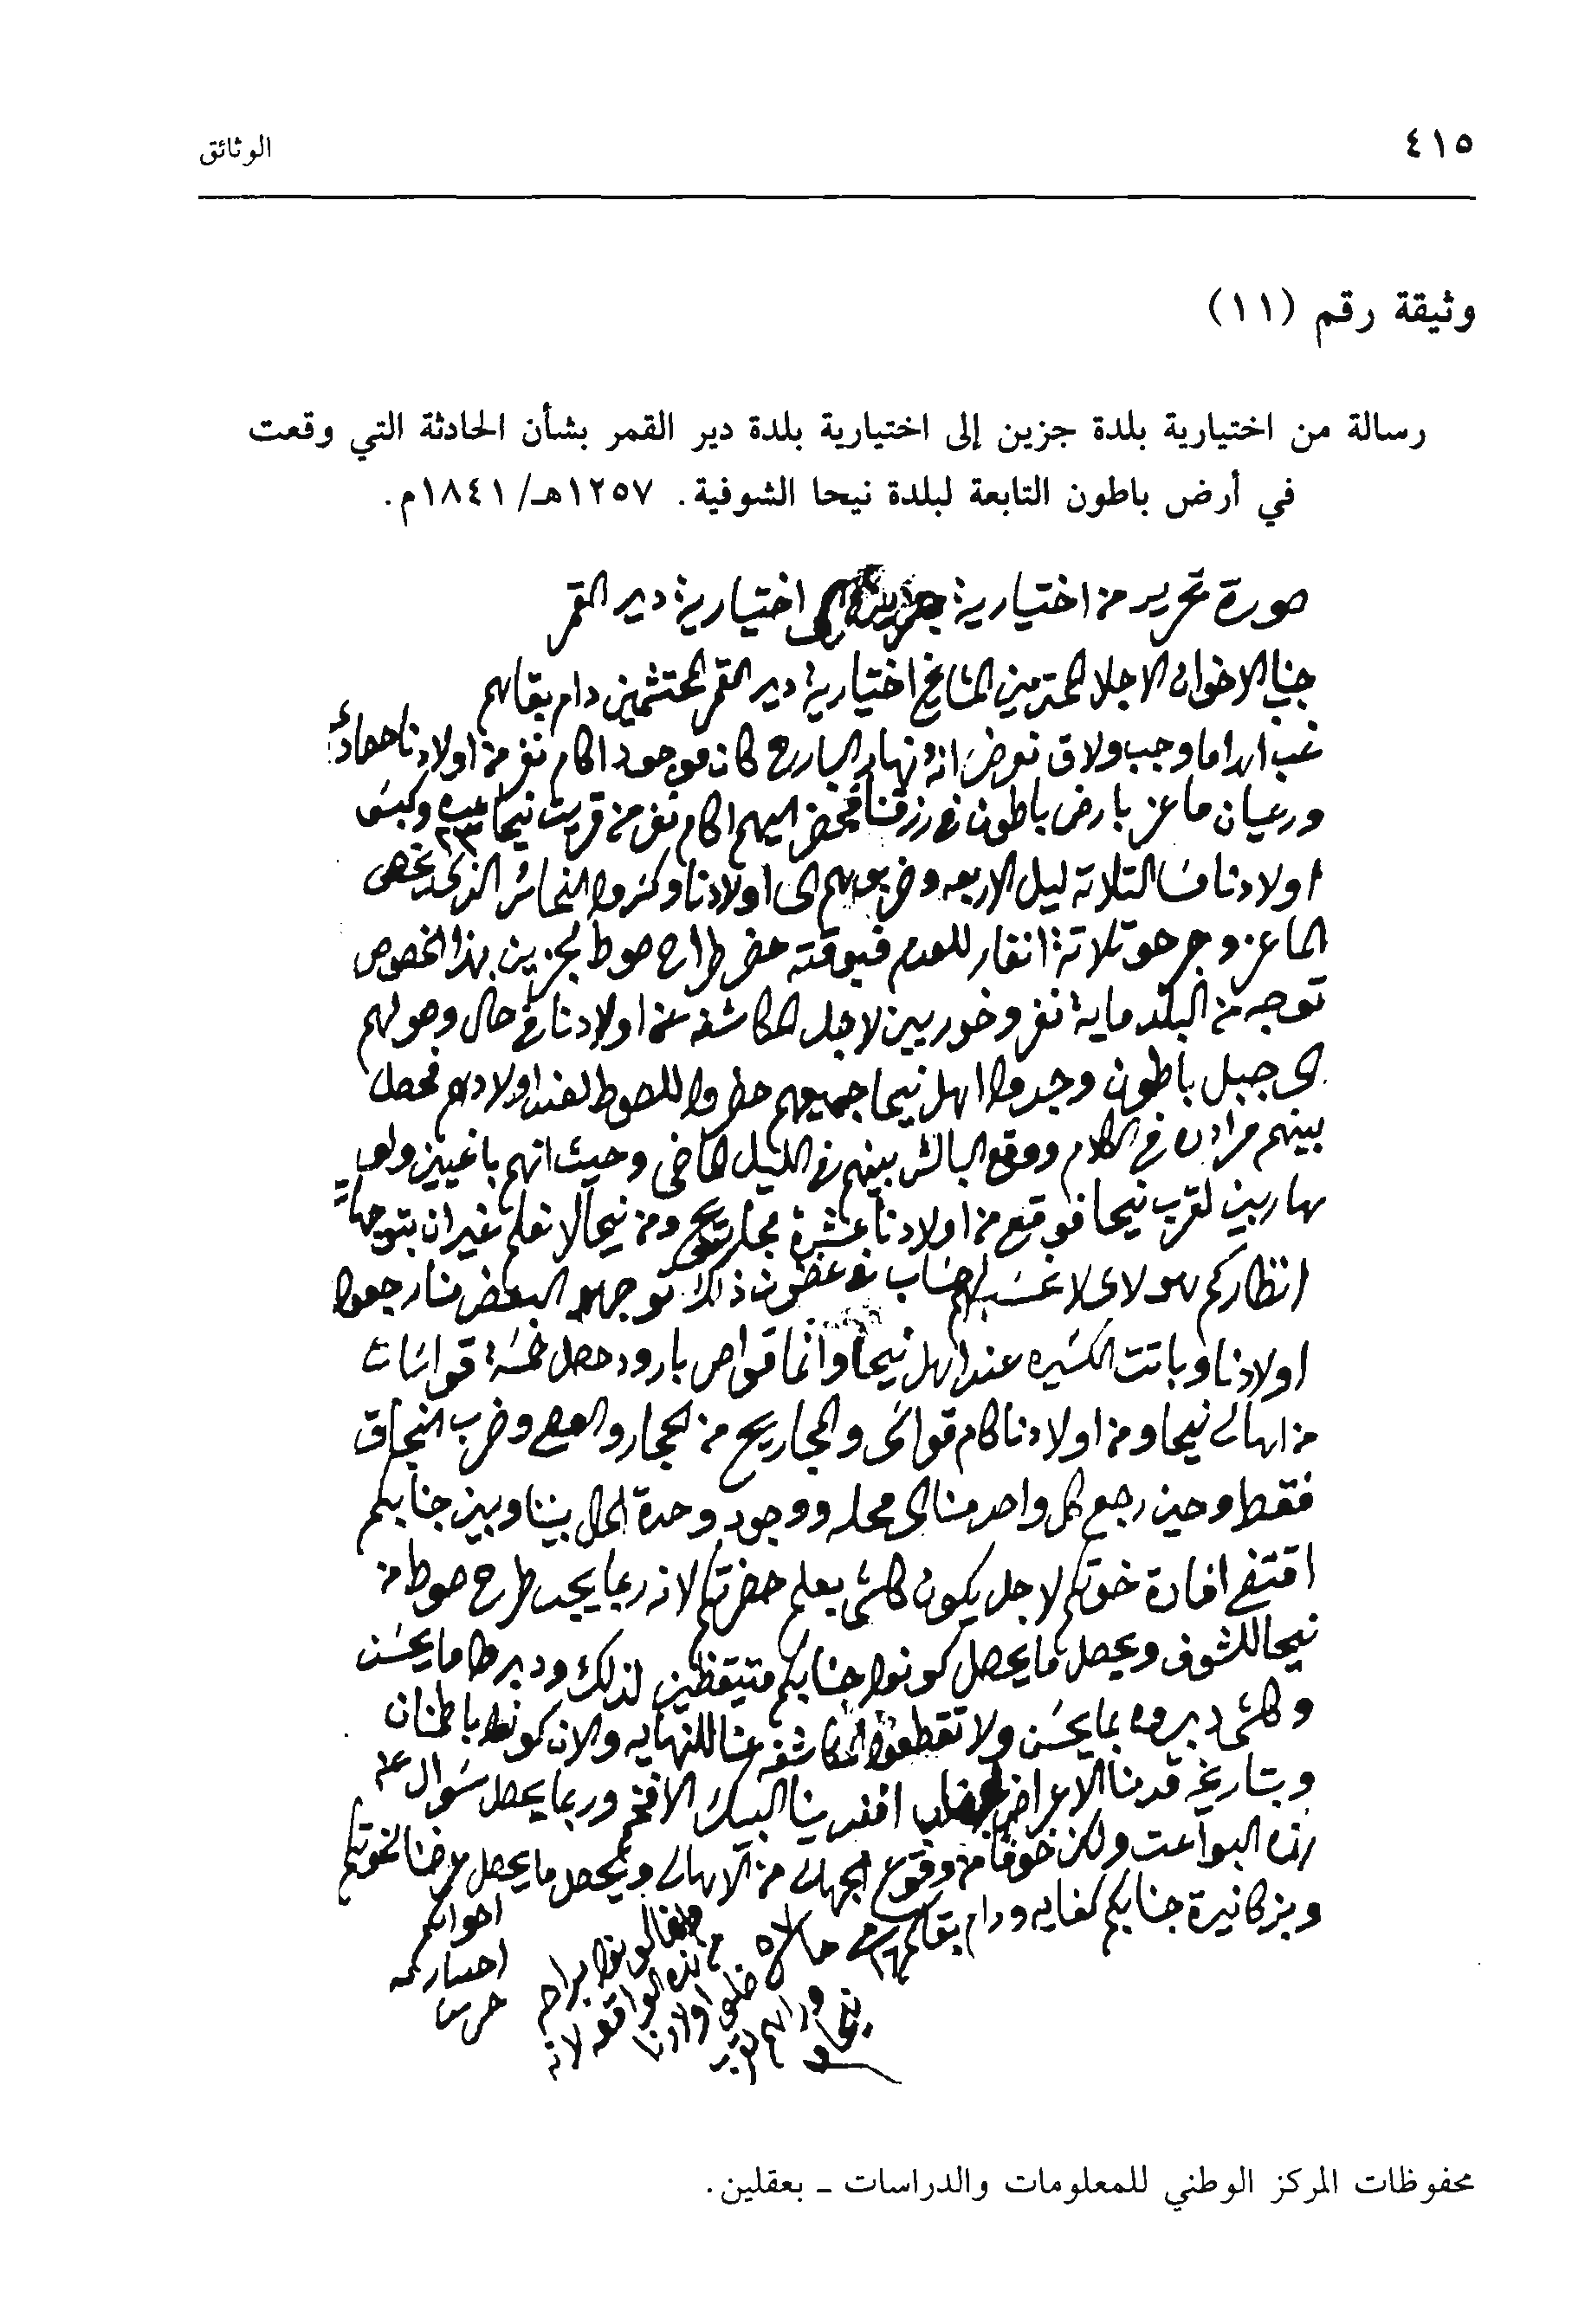 ٤١٥
الوثائق
وثيقة رقم (١١)
رسالة من اختيارية بلدة جزين إلى اختيارية بلدة دير القمر بشأن الحادثة التي وقعت
في أرض باطون التابعة لبلدة نيحا الشوفية. ١٢٥٧هـ/١٨٤١م.
صورة تحرير من اختيارية اختيارية دير القمر
جناب الاخوان الاجلا المحترمين المشايخ اختيارية دير القمر المحتشمين دام بقاهم
غب اهدا ما وجب ولاق نعرض انه نهار البارح كان موجود اكام نفر من اولادنا
ورعيان ماعز بارض باطون في رزقنا فحضر اليهم اكام نفر من قرية نيحا وكبسو
اولادنا مسا التلاتة ليل الاربعه وضربوهم الى اولادنا وكسروا
الماعز وجرحو تلاتة انفار للعدم فبوقته حضر طراح صوط لجزين بهذا الخصوص
توجه من البلد ماية نفر وخوريين لاجل المكاشفه عن اولادنا في حال وصولهم
الى جبل باطون وجدوا اهل نيحا جميعهم حضروا للصوط لعند اولادهم فحصل
بينهم مرادده في الكلام ووقع البالش بينهم في الليل الماضي وحيث انهم باغيين
هاربين لقرب نيحا فوقع من اولادنا عشرة مجاريح ومن نيحا لا نعلم غير ان بتوجهات
انظاركم لاي لا حساب في غضون ذلك توجهوا البعض منا رجعوا
اولادنا وباتت الكسيره عند اهل نيحا وانما قواص بارود حصل خمسة قواسات
من اهالي نيحا ومن اولادنا كام قواس والمجاريح من الحجار والعصي وضرب
فقط وحين رجع كل واحد منا الى محله ووجود وحدة الحال بيننا وبين جنابكم
اقتضى افادة خوتكم لاجل يكون كلشي بعلم حضرتكم لانه ربما يجب طرح صوط من
نيحا للشوف ويحصل ما يحصل كونوا جنابكم متيقظين لذلك ودبروا ما يحسن
وكلشي دبروه بما يحسن ولا تقطعوا المكاشفه عنا للنهايه والان كونوا باطمنان
وبتاريخه قدمنا الاعراض افندينا البيك الافخم وربما يحصل سوال عن
هذه البواعت ولكن خوفا من وقوع الجهال من الاهالي ويحصل ما يحصل عرضنا لخوتكم
جنابكم كفايه ودام بقاكم
اخوانكم
اختيارية
جزين
محفوظات المركز الوطني للمعلومات والدراسات ــ بعقلين.